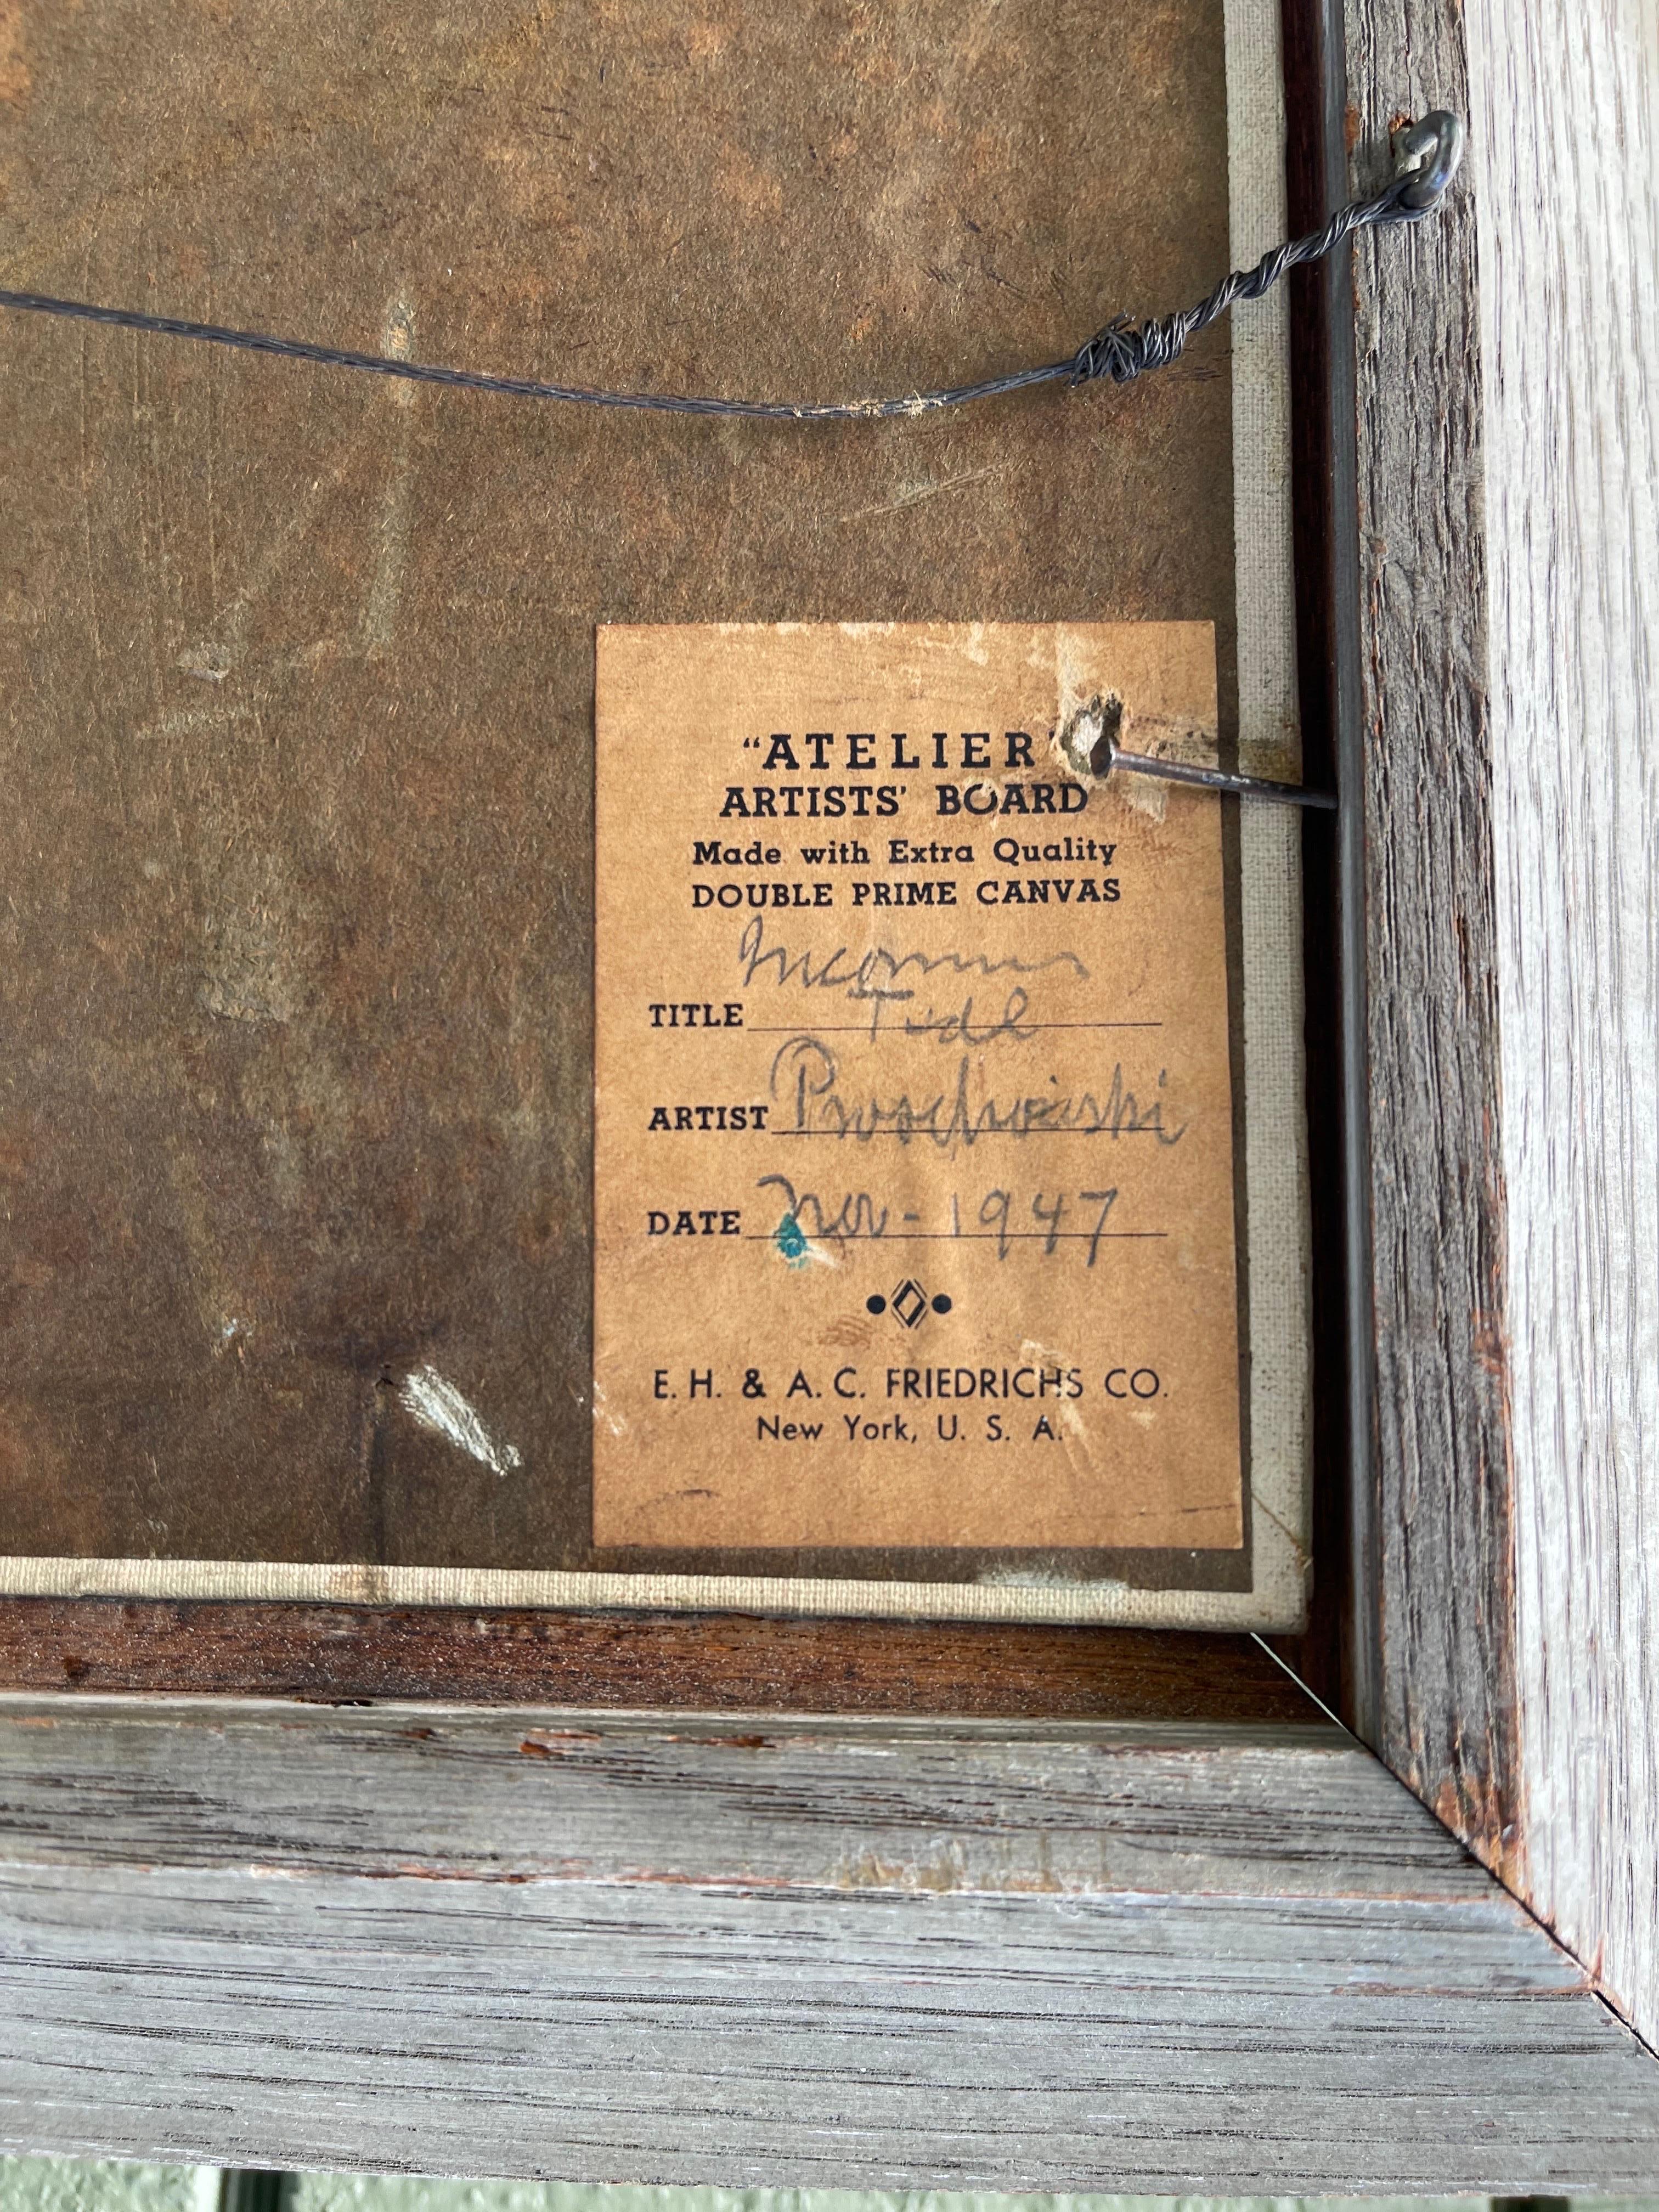 "ATELIER"
ARTISTS' BOARD
Made with Extra Quality
DOUBLE PRIME CANVAS
TITLE Tide
ARTIST
DATE Nov - 1947
E. H. & A. C. FRIEDRICHS CO.
New York, U. S. A.